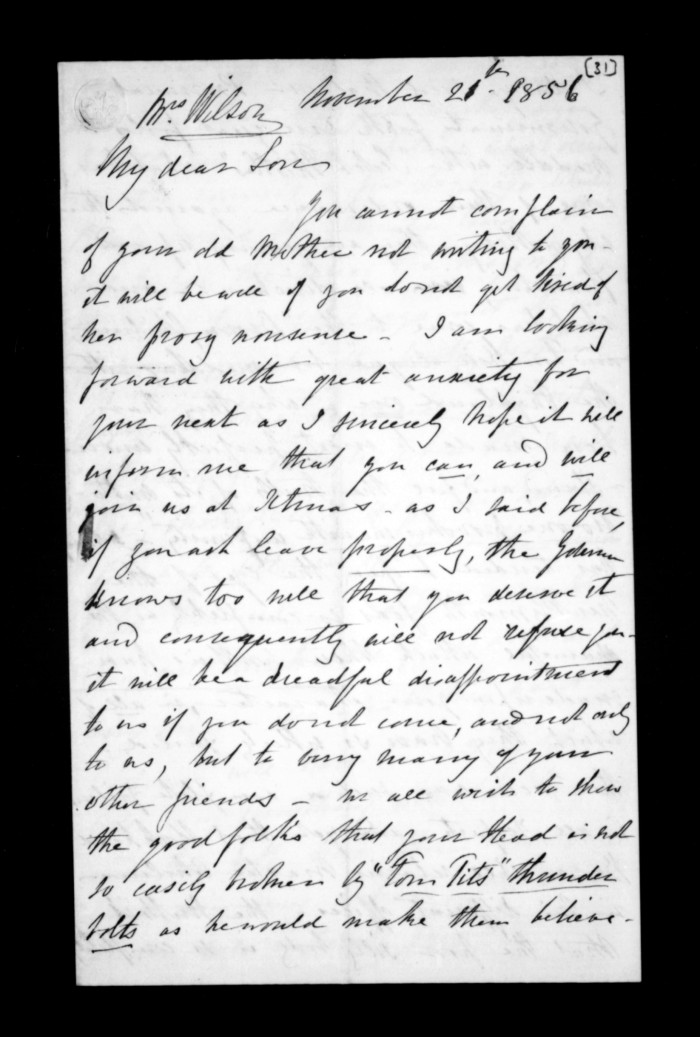 [31]
Mrs Wilson November 21th 1856
My dear Son
You cannot complain
of your old Mother not writing to you -
it will be well if you do not get tired of
her prosy nonsense - I am looking
forward with great anxiety for
your next as I sincerely hope it will
inform me that you can and will
join us at Xtmas - as I said before,
if you ask leave properly, the Governor
knows too well that you deserve it
and consequently will not refuse you -
it will be a dreadful disappointment
to us if you do not come, and not only
to us, but to very many of your
other friends - we all wish to show
the good folks that your Head is not
so easily broken by "Tom Tits" thunder
bolts as he would make them believe -